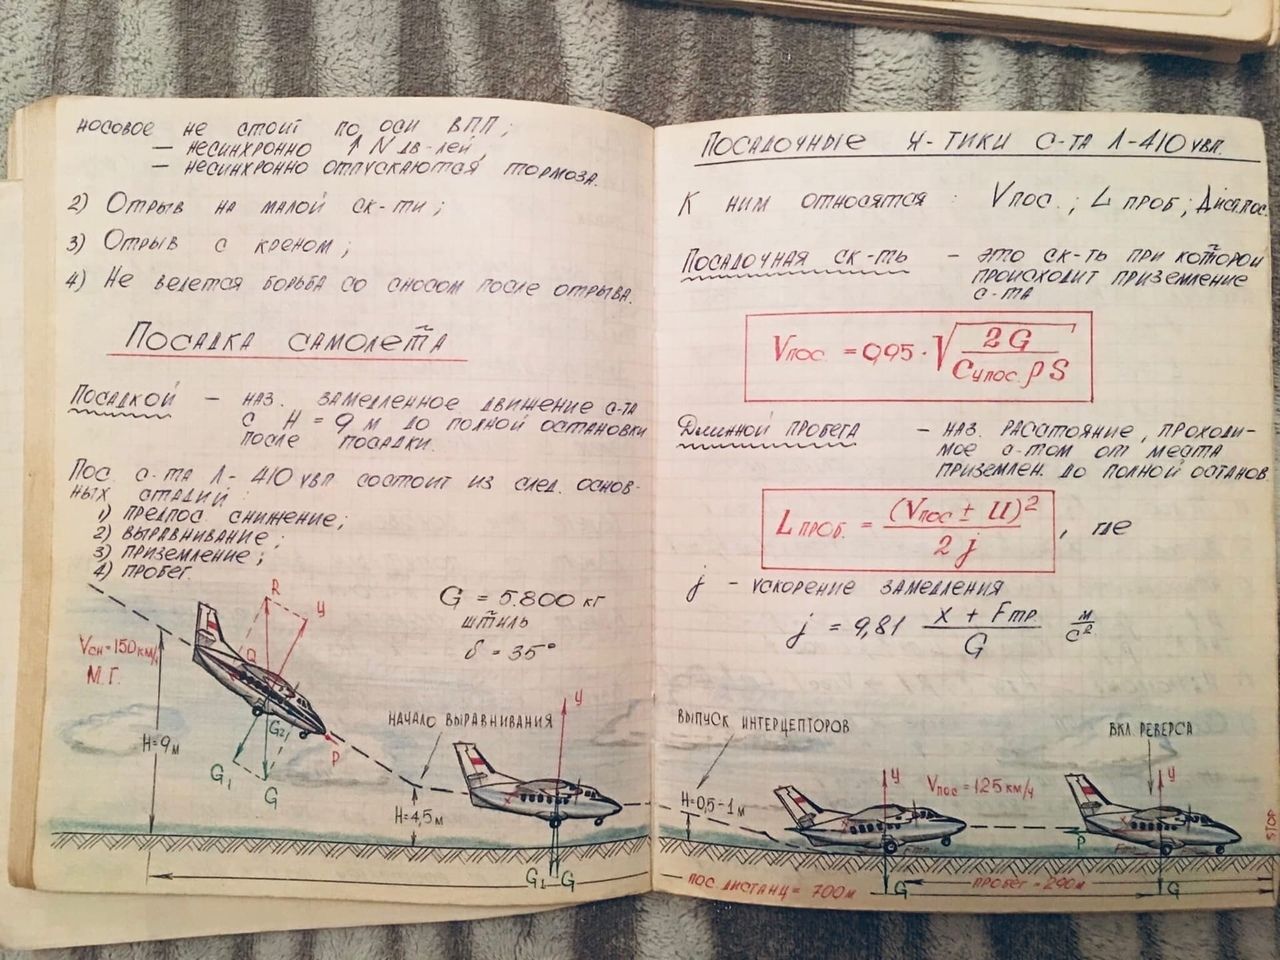 носовое не стоит по оси ВПП;
— несинхронно ↑ N дв-лей,
— несинхронно отпускаются тормоза.
2) Отрыв на малой ск-ти;
3) Отрыв с креном;
4) Не ведется борьба со сносом после отрыва.
Посадка самолета
Посадкой — наз. замедленное движение с-та
с H = 9 м до полной остановки
после посадки.
Пос. с-та Л-410 увп состоит из след. основ-
ных стадий:
1) предпос. снижение;
2) выравнивание;
3) приземление;
4) пробег.
G = 5.800 кг
штиль
δ = 35°
R
У
Vсн = 150 км/ч
М.Г.
Q
G2
P
G1
G
H = 9 м
начало выравнивания
H = 4,5 м
У
X
G1 G
Посадочные х-тики с-та Л-410 увп.
К ним относятся: Vпос.; L проб; Дист.пос.
Посадочная ск-ть — это ск-ть при которой
происходит приземление
с-та
Vпос. = 0,95 · √ 2G / Cупос. ρ S
Длинной пробега — наз. расстояние, проходи-
мое с-том от места
приземлен. до полной останов
L проб. = (Vпос ± U)² / 2j , где
j — ускорение замедления
j = 9,81 X + Fтр / G м/с²
выпуск интерцепторов
вкл реверса
H = 0,5-1 м
У
Vпос = 125 км/ч
У
X
X
P
Fтр
Fтр
STOP
пос дистанц = 700 м
G
пробег = 290 м
G